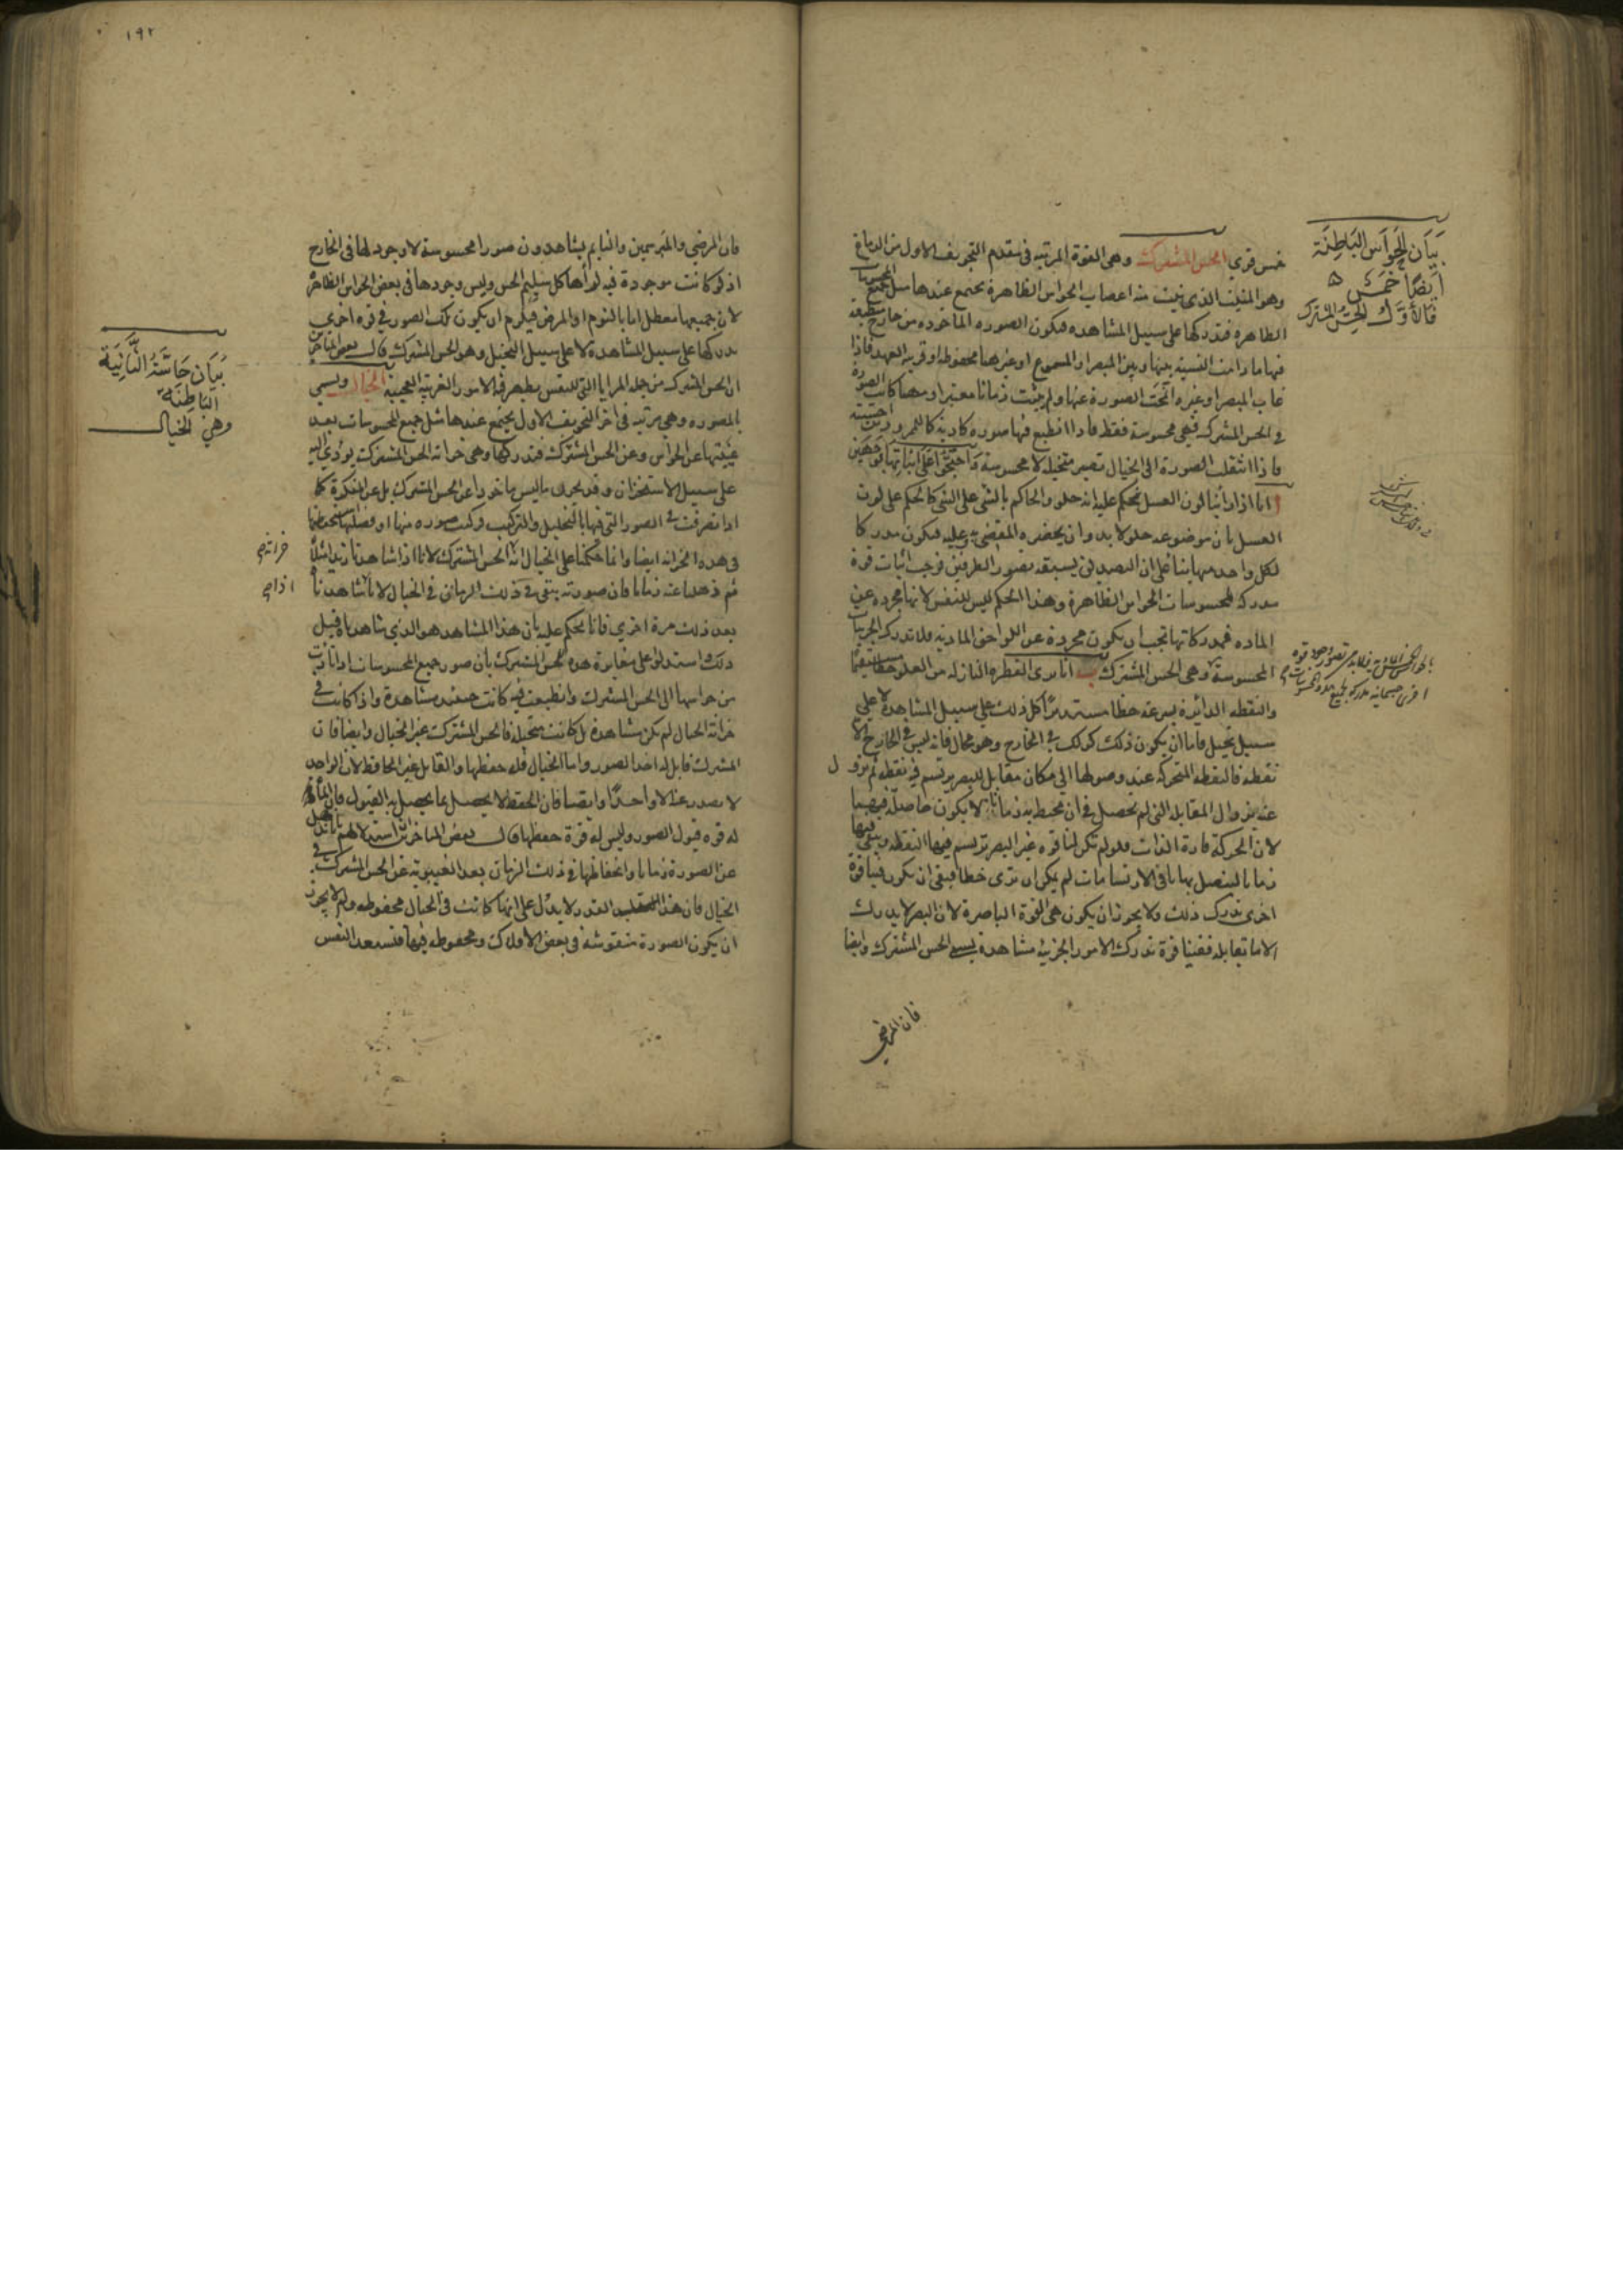 ١٩٢
بيان الحواس الباطنة
أيضًا خمس ه
فالأول الحس المشترك
خمس قوى الحس المشترك وهى القوة المرتبه فى مقدم التجويف الاول من الدماغ
وهو المنبت الذى نبت منه اعصاب الحواس الظاهرة يجتمع عندها مثل جميع المحسوسات
الظاهره فتدركها على سبيل المشاهده فيكون الصوره الماخوده من خارج منطبعة
فيها ما دامت النسبة بينها وبين المبصر او المسموع او غيرهما محفوظه او قريبه العهد فاذا
غاب المبصر او غيره انمحت الصورة عنها ولم يثبت زمانا معتبرا ومهما كانت الصورة
فى الحس المشترك فهى محسوسة فقط فاذا انطبع فيها صوره كاذبة كالممرورين احسته
فاذا انتقلت الصورة الى الخيال تصير متخيله لا محسوسة واحتجوا على اثباتها بوجهين
ا انا اذا راينا لون العسل نحكم عليه انه حلو والحاكم بالشى على الشى كما نحكم على لون
العسل بان موضوعه حلو لا بد وان يحضره المقضى به وعليه فيكون مدركا
لكل واحد منهما بنا على ان التصديق يسبقه تصور الطرفين فوجب اثبات قوة
مدركه لمحسوسات الحواس الظاهرة وهذا الحكم ليس للنفس لانها مجرده عن
الماده فمدركاتها تجب ان يكون مجردة عن اللواحق المادية فلا تدرك الجزيات
المحسوسة وهى الحس المشترك ب انا نرى القطره النازله من العلو خطا مستقيما
والنقطه الدائرة بسرعه خطا مستديرًا كل ذلك على سبيل المشاهدة لا على
سبيل تخيل فاما ان يكون ذلك كذلك فى الخارج وهو محال فانه ليس فى الخارج الا
نقطه فالنقطه المتحركة عند وصولها الى مكان مقابل للبصر يرتسم فيه نقطه ثم يزول
عنه بزوال المقابله التى لم تحصل فى ان محيط به زمانان لا يكون حاصلة فيهما
لان الحركة قارة الذات فلو لم تكن لنا قوه غير البصر ترتسم فيها النقطه ويبقى فيها
زمانا ليتصل بها باقى الارتسامات لم يمكن ان نرى خطا فبقى ان يكون فينا قوة
اخرى تدرك ذلك ولا يجوز ان يكون هى القوة الباصرة لان البصر لا يدرك
الا ما يقابله ففينا قوة تدرك الامور الجزئية مشاهدة يسمى الحس المشترك وايضا
فان المرضى
فان المرضى والمبرسمين والنايم يشاهدون صورا محسوسة لا وجود لها فى الخارج
اذ لو كانت موجودة فيه لرأها كل سليم الحس وليس وجودها فى بعض الحواس الظاهرة
لان جميعها معطل اما بالنوم او المرض فيلزم ان يكون تلك الصور فى قوه اخرى
يدركها على سبيل المشاهدة لا على سبيل التخيل وهو الحس المشترك قال بعض المتاخرين
ان الحس المشترك من جمله المرايا التى للنفس يظهر فيه الامور الغريبة العجيبة الخيال ويسمى
المصوره وهى مرتبه فى اخر التجويف الاول يجتمع عندها مثل جميع المحسوسات بعد
غيبتها عن الحواس وعن الحس المشترك فتدركها وهى خزانه الحس المشترك يؤدى اليه
على سبيل الاستخزان وقد يخزن ما ليس ماخوذا عن الحس المشترك بل عن المفكرة كما
اذا تصرفت فى الصور التى فيها بالتحليل والتركيب فركبت صوره منها او فصلتها استحفظتها
فى هذه الخزانه ايضا وانما حكمنا على الخيال انه الحس المشترك لانا اذا شاهدنا زيدا مثلا
ثم ذهلنا عنه زمانا فان صورته يبقى فى ذلك الزمان فى الخيال لانا شاهدناه
بعد ذلك مرة اخرى فانا نحكم عليه بان هذا المشاهد هو الذى شاهدناه قبل
ذلك واستدلوا على مغايرة هذه للحس المشترك بان صور جميع المحسوسات اذا تادت
من حواسها الى الحس المشترك وانطبعت فيه كانت حينئذ مشاهدة واذا كانت فى
خزانة الخيال لم يكن مشاهدة بل كانت متخيله فالحس المشترك غير الخيال وايضا فان
المشترك قابل له اخذ الصور واما الخيال فله حفظها والقابل غير الحافظ لان الواحد
لا يصدر عنه الا واحدًا وايضا فان الحفظ لا يحصل بما يحصل به القبول فان الماء
له قوه قبول الصور وليس له قوة حفظها قال بعض المتاخرين استدلالهم بالذهول
عن الصورة زمانا وانحفاظها فى ذلك الزمان بعد الغيبوبة عن الحس المشترك فى
الخيال فان هذا القدر لا يدل على انها كانت فى الخيال محفوظه ولم لا يجوز
ان يكون الصورة منقوشه فى بعض الافلاك ومحفوظه فيها فتستعد النفس
بيان حاسة الثانية
الباطنة
وهي الخيال
خزانة
اذا